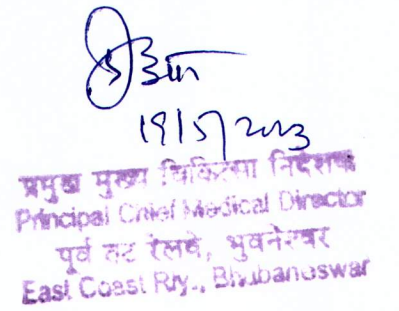 19/5/2023
प्रमुख मुख्य चिकित्सा निदेशक
Principal Chief Medical Director
पूर्व तट रेलवे, भुवनेश्वर
East Coast Rly., Bhubaneswar